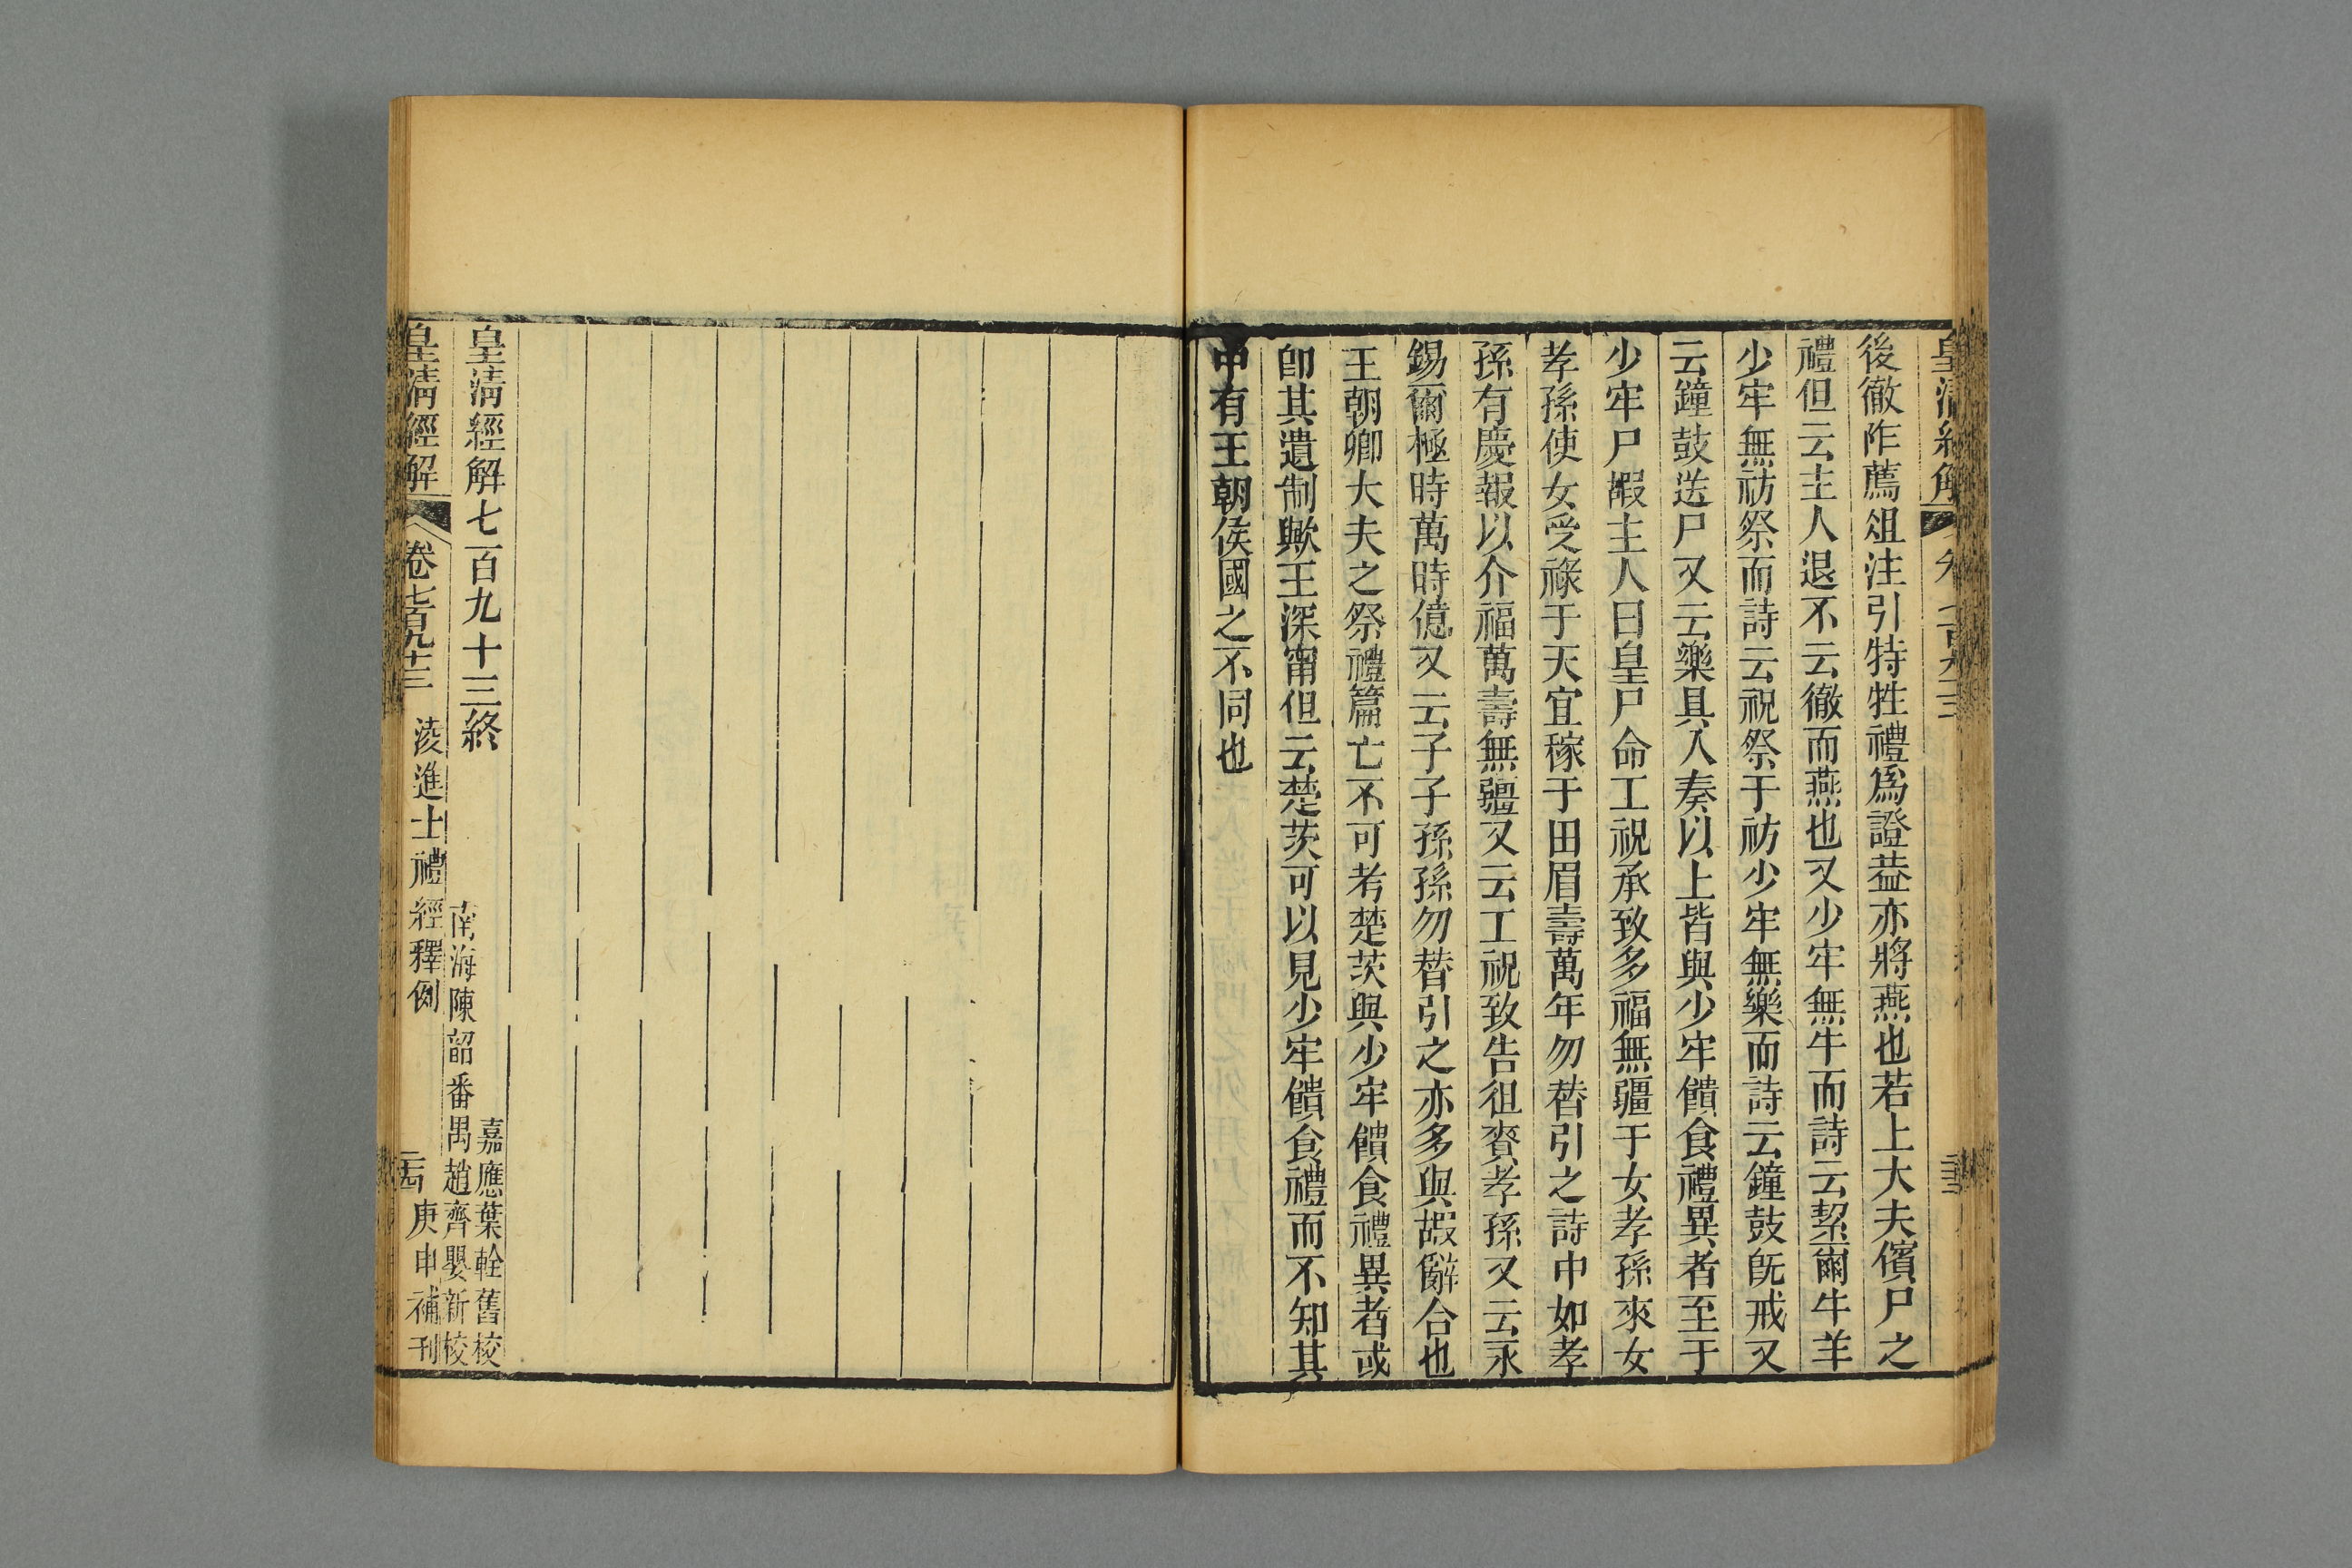 皇清經解
後徹阼薦俎注引特牲禮爲證葢亦將燕也若上大夫儐尸之
禮但云主人退不云徹而燕也又少牢無牛而詩云絜爾牛羊
少牢無祊祭而詩云祝祭于祊少牢無樂而詩云鐘鼓旣戒又
云鐘鼓送尸又云樂具入奏以上皆與少牢饋食禮異者至于
少牢尸嘏主人曰皇尸命工祝承致多福無疆于女孝孫來女
孝孫使女受祿于天宜稼于田眉壽萬年勿替引之詩中如孝
孫有慶報以介福萬壽無疆又云工祝致告徂賚孝孫又云永
錫爾極時萬時億又云子子孫孫勿替引之亦多與嘏辭合也
王朝卿大夫之祭禮篇亡不可考楚茨與少牢饋食禮異者或
卽其遺制歟王深甯但云楚茨可以見少牢饋食禮而不知其
中有王朝侯國之不同也
皇清經解七百九十三終
嘉應葉輇舊校
南海陳韶番禺趙齊嬰新校
皇清經解 卷七百九十三 淩進士禮經釋例 二十四 庚申補刊